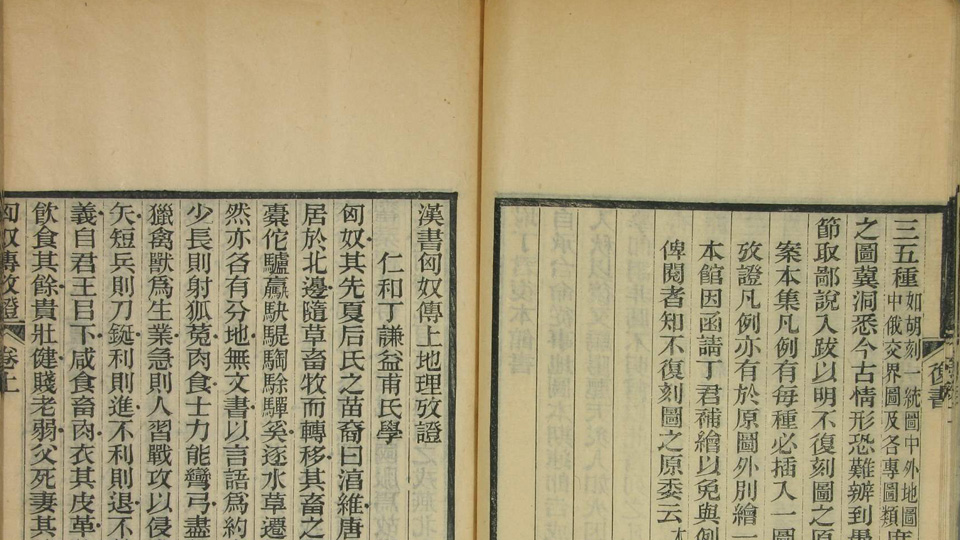 三五種如胡刻一統圖中外地圖
中俄交界圖及各專圖類
之圖冀洞悉今古情形恐難辦到
節取鄙說入跋以明不復刻圖之原
案本集凡例有每種必插入一圖
攷證凡例亦有於原圖外別繪一
本館因函請丁君補繪以免與例
俾閱者知不復刻圖之原委云
復書
漢書匈奴傳上地理攷證
仁和丁謙益甫氏學
匈奴其先夏后氏之苗裔曰淳維唐
居於北邊隨草畜牧而轉移其畜之
橐佗驢驘駃騠騊駼驒奚逐水草遷
然亦各有分地無文書以言語爲約
少長則射狐菟肉食士力能彎弓盡
獵禽獸爲生業急則人習戰攻以侵
矢短兵則刀鋋利則進不利則退不
義自君王㠯下咸食畜肉衣其皮革
飲食其餘貴壯健賤老弱父死妻其
匈奴傳攷證 卷上